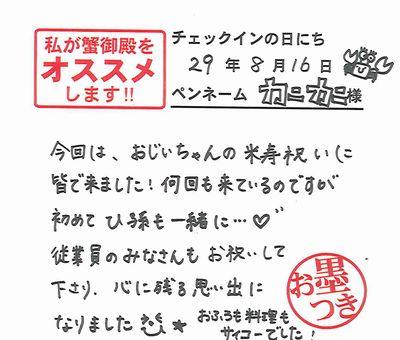 私が蟹御殿を
オススメ
します!!
チェックインの日にち
29年8月16日
ペンネーム カニカニ様
今回は、おじいちゃんの米寿祝いに
皆で来ました!何回も来ているのですが
初めてひ孫も一緒に…♡
従業員のみなさんもお祝いして
下さり、心に残る思い出に
なりました ★ おふろも料理も
サイコーでした!
お墨つき